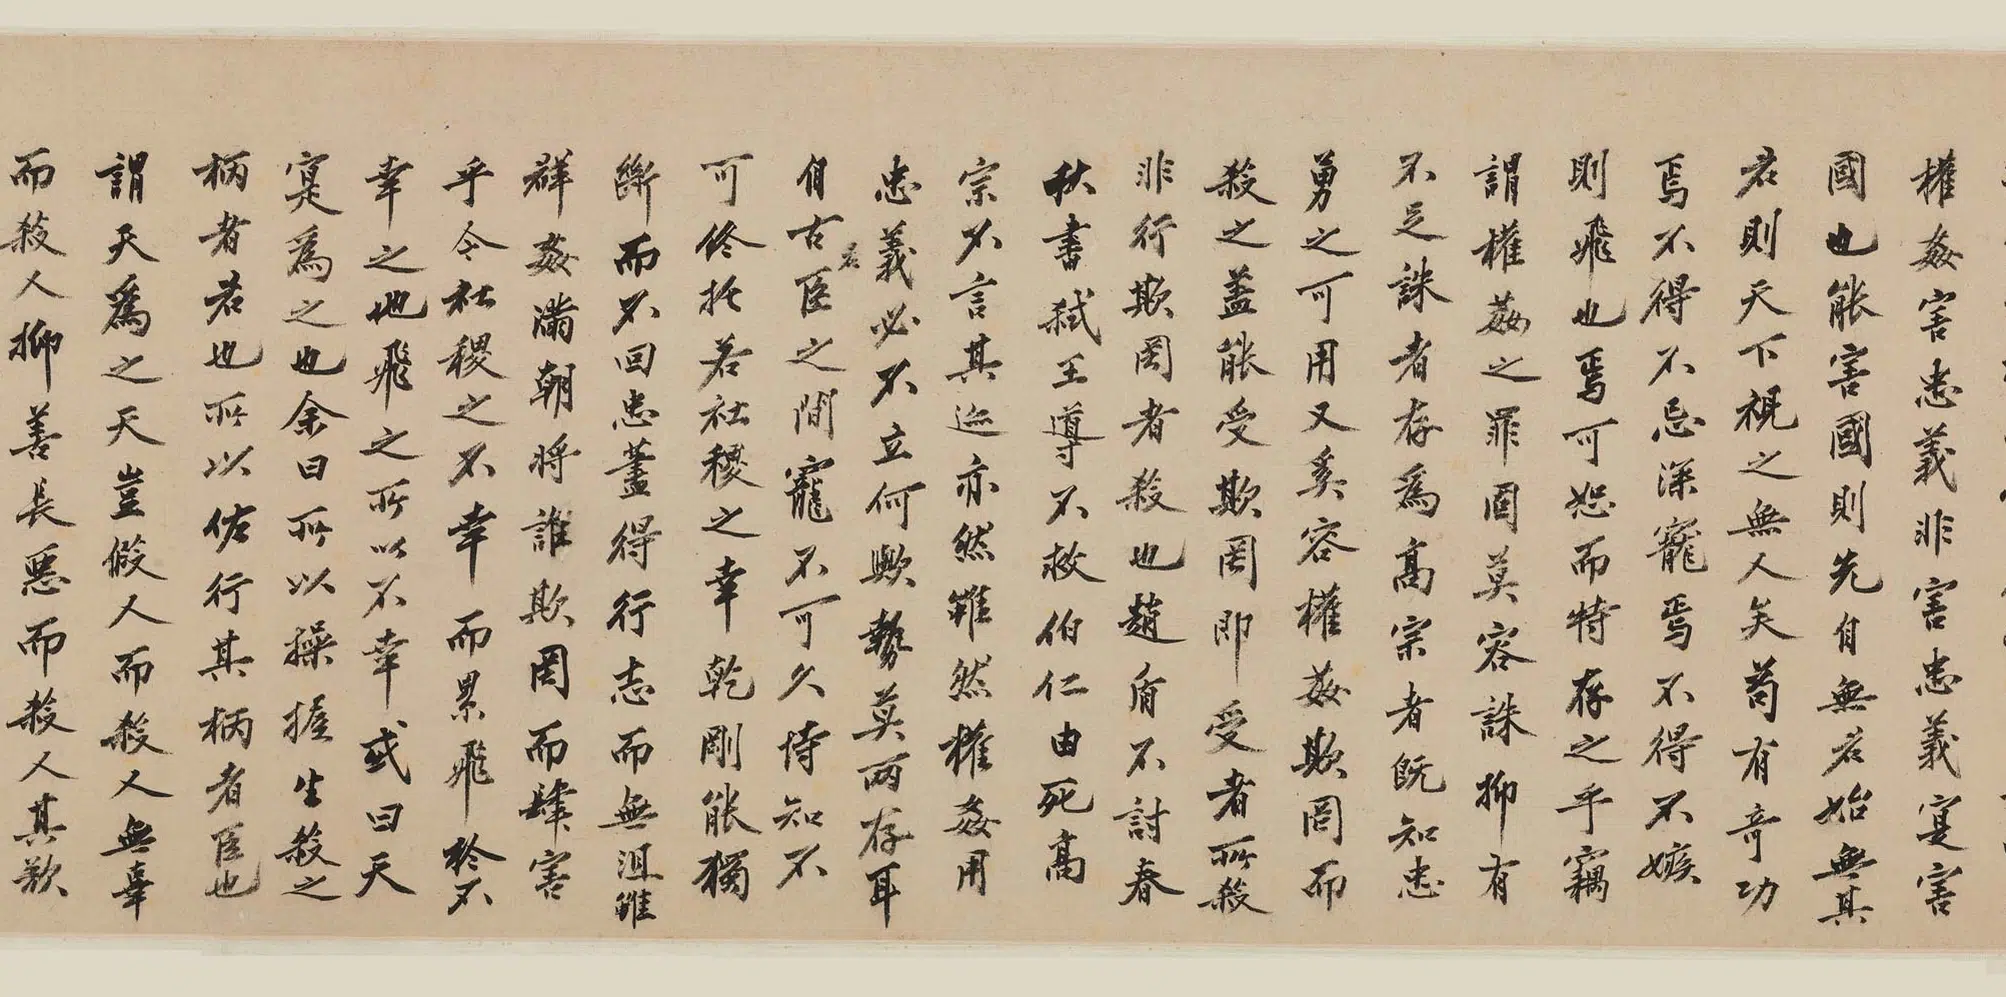 權姦害忠義非害忠義寔害
國也能害國則先自無君始無其
君則天下視之無人矣苟有奇功
焉不得不忌深寵焉不得不嫉
則飛也焉可恕而特存之乎竊
謂權姦之罪固莫容誅抑有
不足誅者存焉高宗者既知忠
勇之可用又奚容權姦欺罔而
殺之蓋能受欺罔即受者所殺
非行欺罔者殺也趙盾不討春
秋書弒王導不救伯仁由死高
宗不言其迹亦然雖然權姦用
忠義必不立何歟勢莫兩存耳
自古君臣之間寵不可久恃知不
可終托若社稷之幸乾剛能獨
斷而不回忠藎得行志而無沮雖
群姦滿朝將誰欺罔而肆害
乎今社稷之不幸而累飛於不
幸之也飛之所以不幸或曰天
寔為之也余曰所以操握生殺之
柄者君也所以佐行其柄者臣也
謂天為之天豈假人而殺人無辜
而殺人抑善長惡而殺人其欺